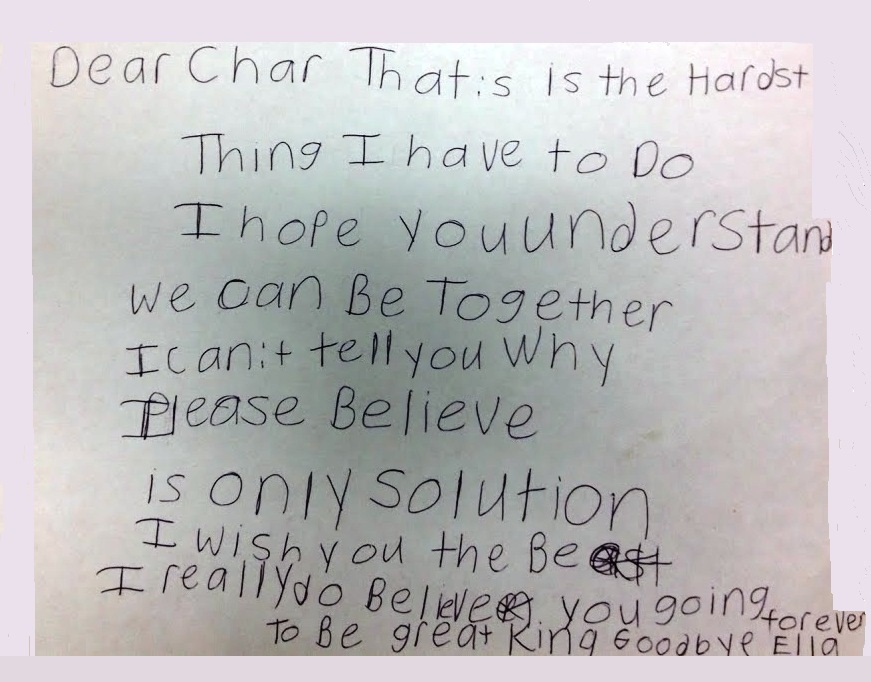 Dear Char That:s is the Hardst
Thing I have to Do
I hope you understand
we can Be Together
I can:t tell you Why
Please Believe
is only Solution
I wish you the Best
I really do Believe you going forever
To Be great King Goodbye Ella